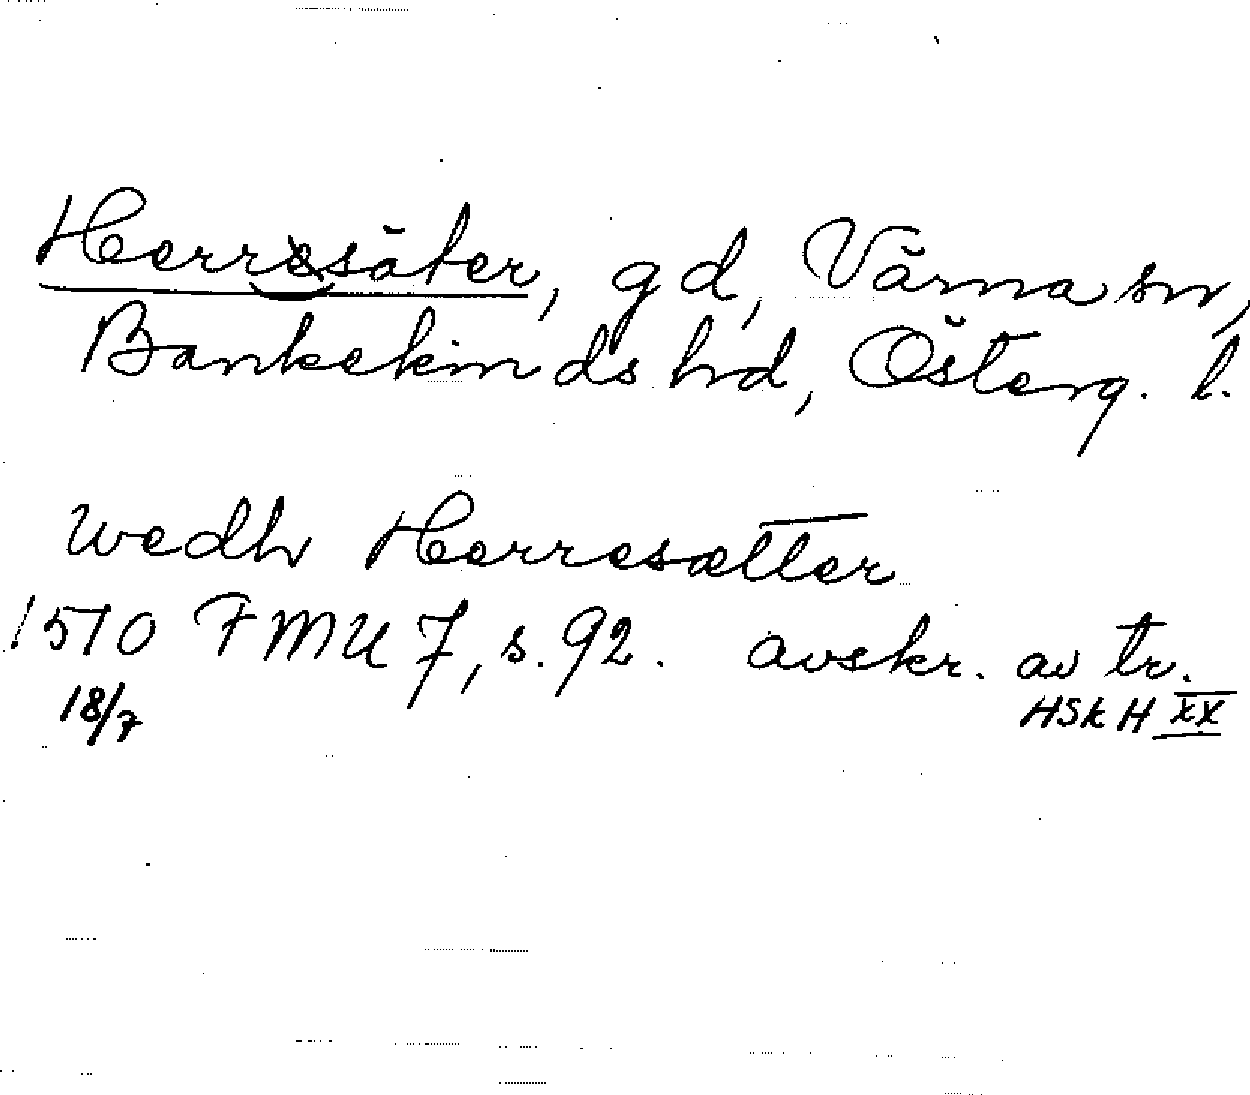 Herrsäter, gd, Värna sn,
Bankekinds hrd, Österg. l.
wedh Herresætter
1510 FMU 7, s. 92. avskr. av tr.
18/7 HSkH XX